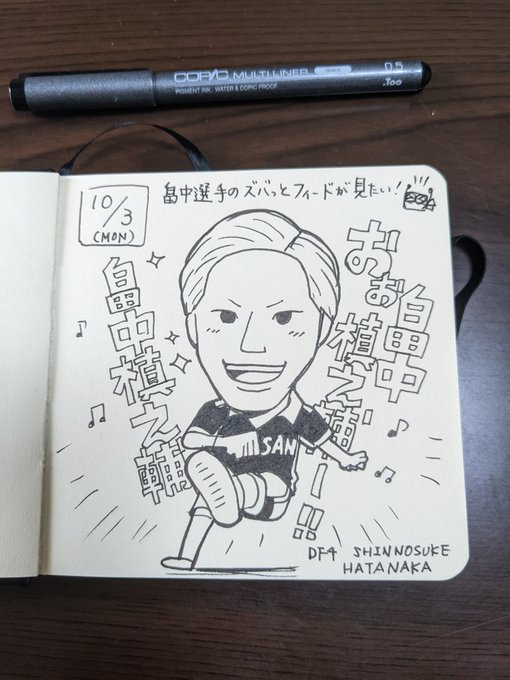 COPIC MULTILINER Black 0.5
PIGMENT INK. WATER & COPIC PROOF. .Too
10/3
(MON)
畠中選手のズバっとフィードが見たい!
畠中槙之輔
おぉ畠中
槙之輔ー!!
SAN
DF4 SHINNOSUKE
HATANAKA